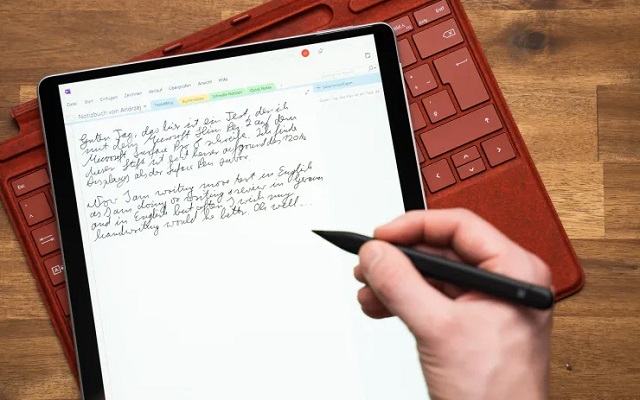 Datei Start Einfügen Zeichnen Verlauf Überprüfen Ansicht Hilfe
Notizbuch von Andrzej
Guten Tag, das hier ist ein Test, der ich
mit dem Microsoft Slim Pen 2 auf dem
Microsoft Surface Pro 8 schreibe. Ich finde
dieser Stift ist fast besser aufgrund des 120Hz
Displays als der Surface Pen zuvor.
Now I am writing some text in English
as I am doing a writing review in German
and in English but often I wish my
handwriting would be better. Oh well...
Esc